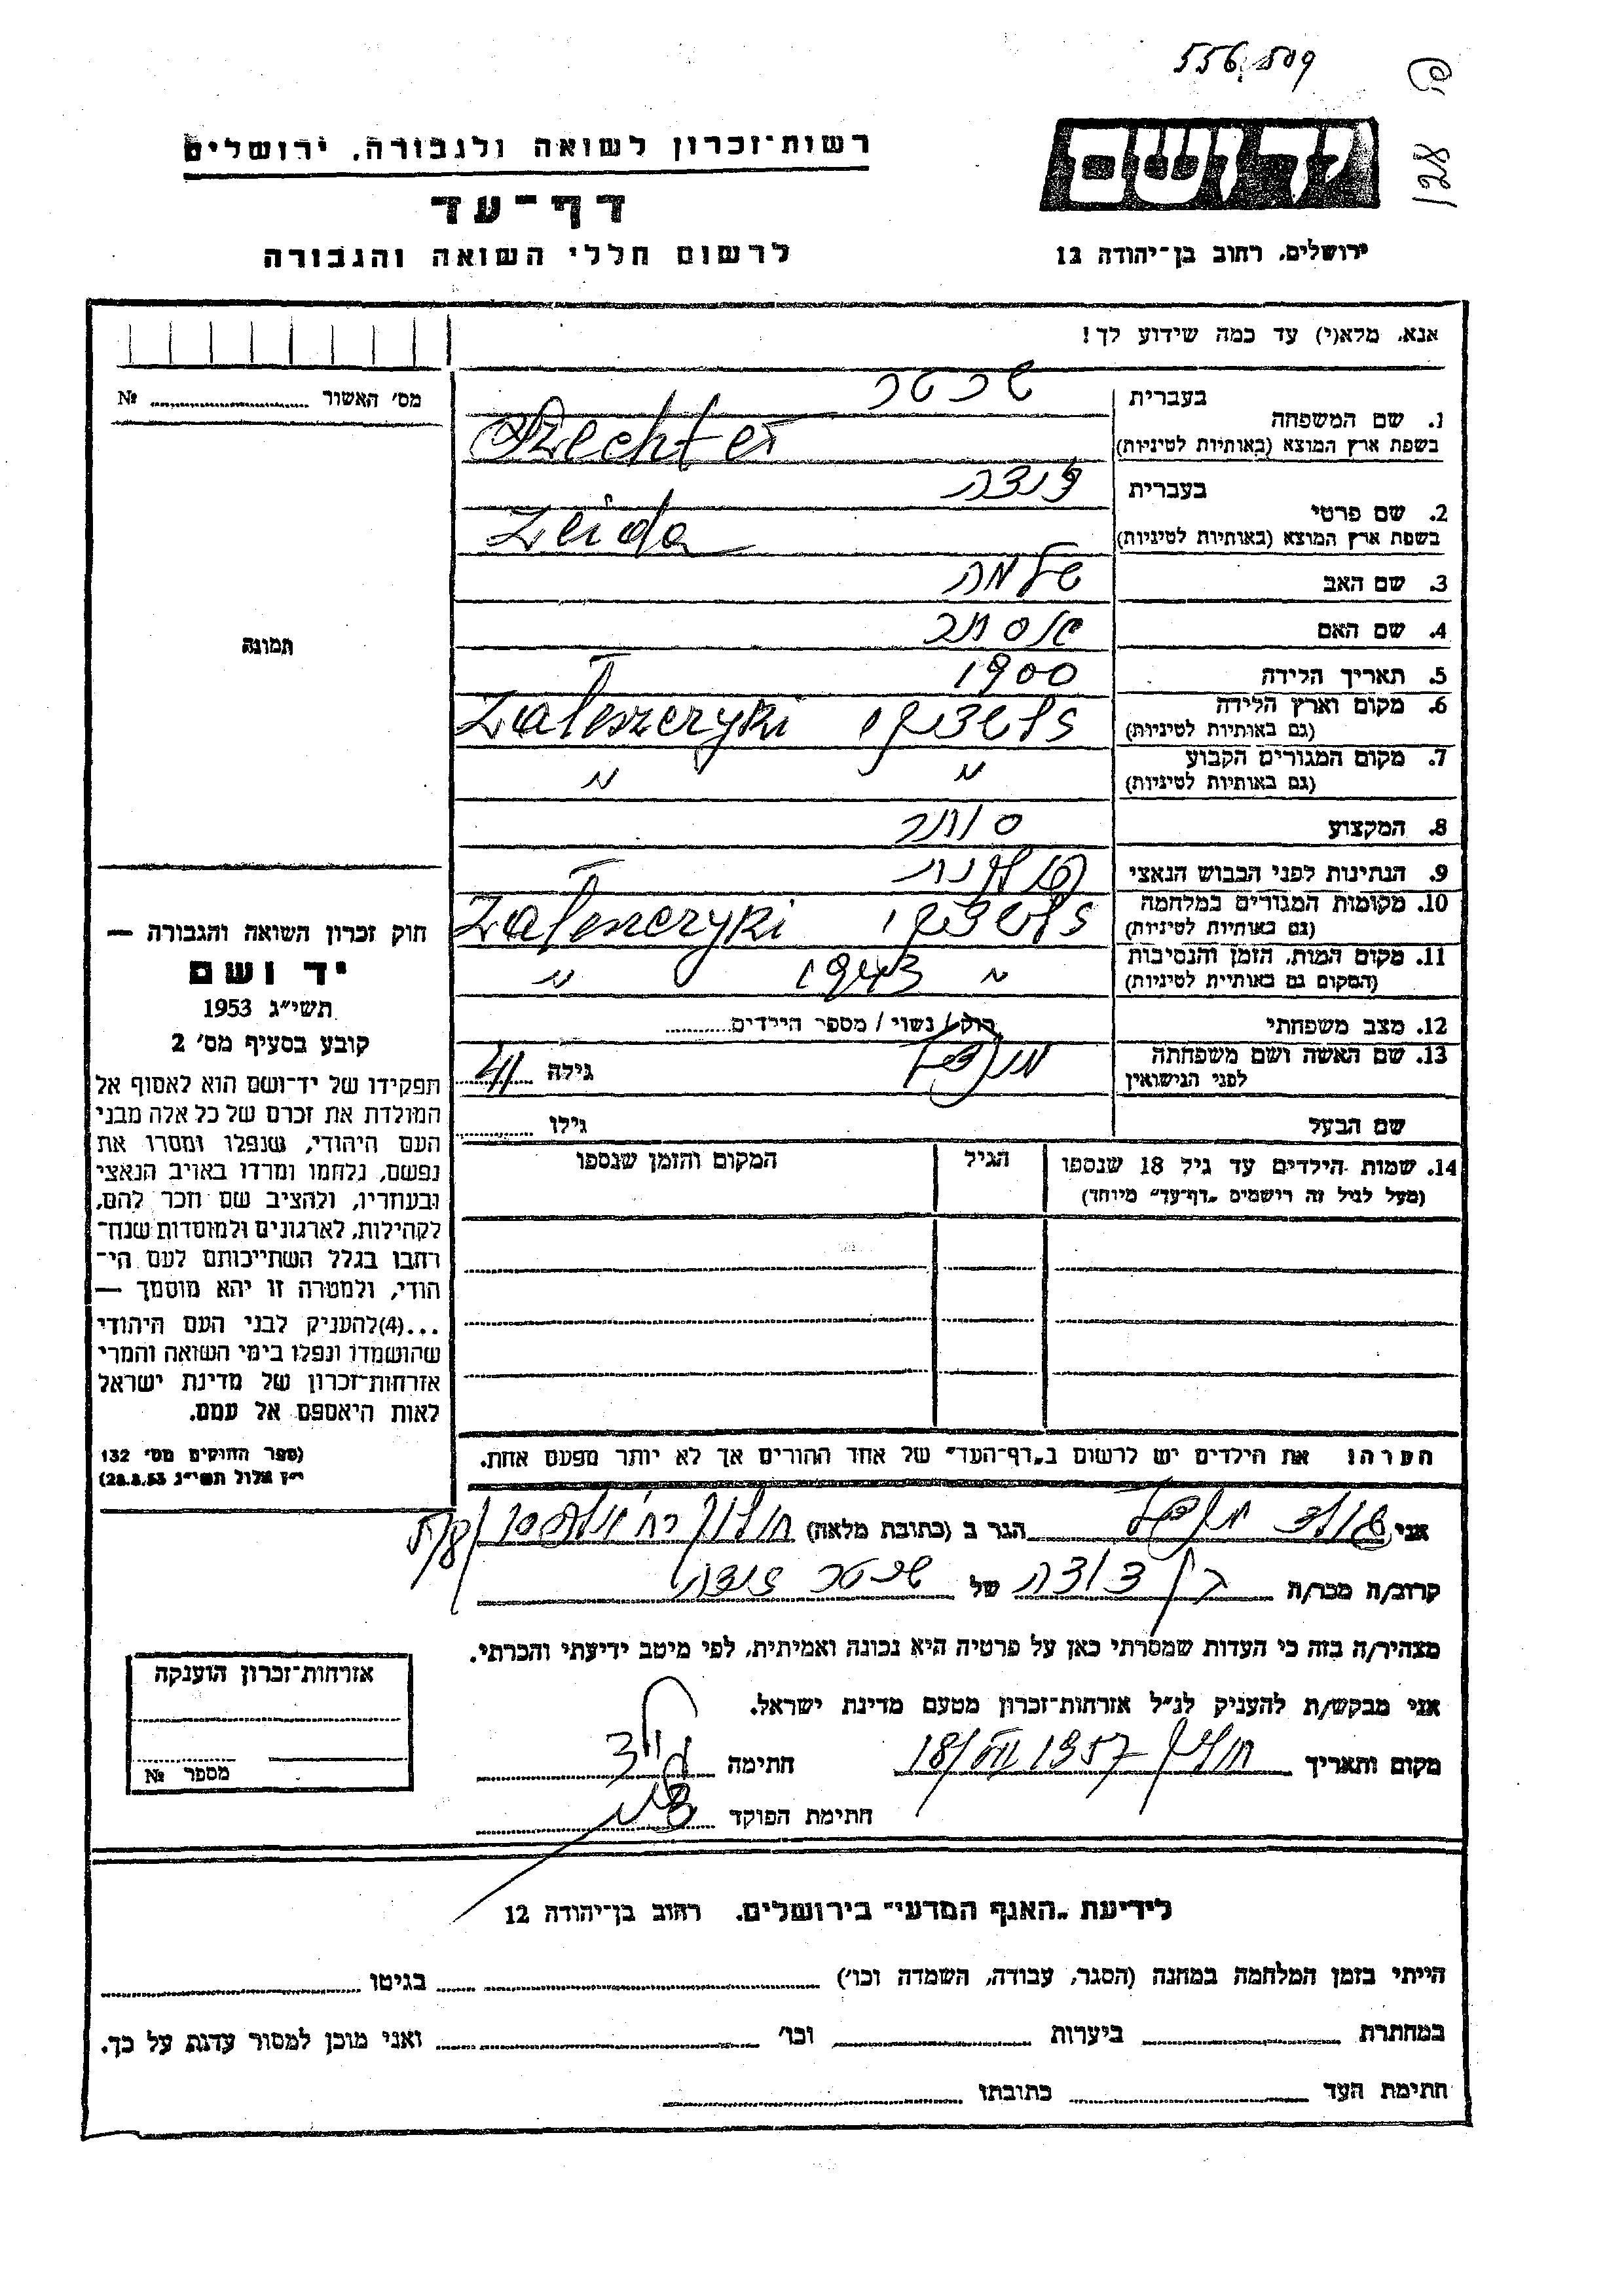 556,509
128
רשות-זכרון לשואה ולגבורה, ירושלים
דף-עד
לרשום חללי השואה והגבורה
ירושלים, רחוב בן-יהודה 12
אנא, מלא(י) עד כמה שידוע לך!
מס׳ האשור № 
1. שם המשפחה בעברית שכטר
בשפת ארץ המוצא (באותיות לטיניות) Szechter
2. שם פרטי בעברית
בשפת ארץ המוצא (באותיות לטיניות) Zeida
3. שם האב שלמה
4. שם האם אסתר
5. תאריך הלידה 1900
6. מקום וארץ הלידה זלשציקי Zaleszczyki
(גם באותיות לטיניות)
7. מקום המגורים הקבוע " "
(גם באותיות לטיניות)
8. המקצוע סוחר
9. הנתינות לפני הכבוש הנאצי פולנית
10. מקומות המגורים במלחמה זלשציקי Zaleszczyki
(גם באותיות לטיניות)
11. מקום המות, הזמן והנסיבות " 1943 "
(המקום גם באותיות לטיניות)
12. מצב משפחתי רוק / נשוי / מספר הילדים
13. שם האשה ושם משפחתה גילה 41
לפני הנישואין
שם הבעל גילו
14. שמות הילדים עד גיל 18 שנספו הגיל המקום והזמן שנספו
(מעל לגיל זה רישמים „דף-עד" מיוחד)
הערה: את הילדים יש לרשום ב„דף-העד" של אחד ההורים אך לא יותר מפעם אחת.
תמונה
חוק זכרון השואה והגבורה —
יד ושם
תשי״ג 1953
קובע בסעיף מס׳ 2
תפקידו של יד-ושם הוא לאסוף אל
המולדת את זכרם של כל אלה מבני
העם היהודי, שנפלו ומסרו את
נפשם, נלחמו ומרדו באויב הנאצי
ובעוזריו, ולהציב שם וזכר להם,
לקהילות, לארגונים ולמוסדות שנח־
רבו בגלל השתייכותם לעם הי־
הודי, ולמטרה זו יהא מוסמך —
...(4)להעניק לבני העם היהודי
שהושמדו ונפלו בימי השואה והמרי
אזרחות-זכרון של מדינת ישראל
לאות היאספם אל עמם.
(ספר החוקים מס׳ 132
י״ז אלול תשי״ג 28.8.53)
אני הגר ב (כתובת מלאה) חולון
קרוב/ה מכר/ה בן דודה של שכטר
מצהיר/ה בזה כי העדות שמסרתי כאן על פרטיה היא נכונה ואמיתית, לפי מיטב ידיעתי והכרתי.
אני מבקש/ת להעניק לנ״ל אזרחות-זכרון מטעם מדינת ישראל.
מקום ותאריך חולון 18/VIII 1957 חתימה
חתימת הפוקד
אזרחות-זכרון הוענקה
מספר №
לידיעת „האגף המדעי" בירושלים. רחוב בן-יהודה 12
הייתי בזמן המלחמה במחנה (הסגר, עבודה, השמדה וכו׳) בגיטו
במחתרת ביערות וכו׳ ואני מוכן למסור עדות על כך.
חתימת העד כתובתו